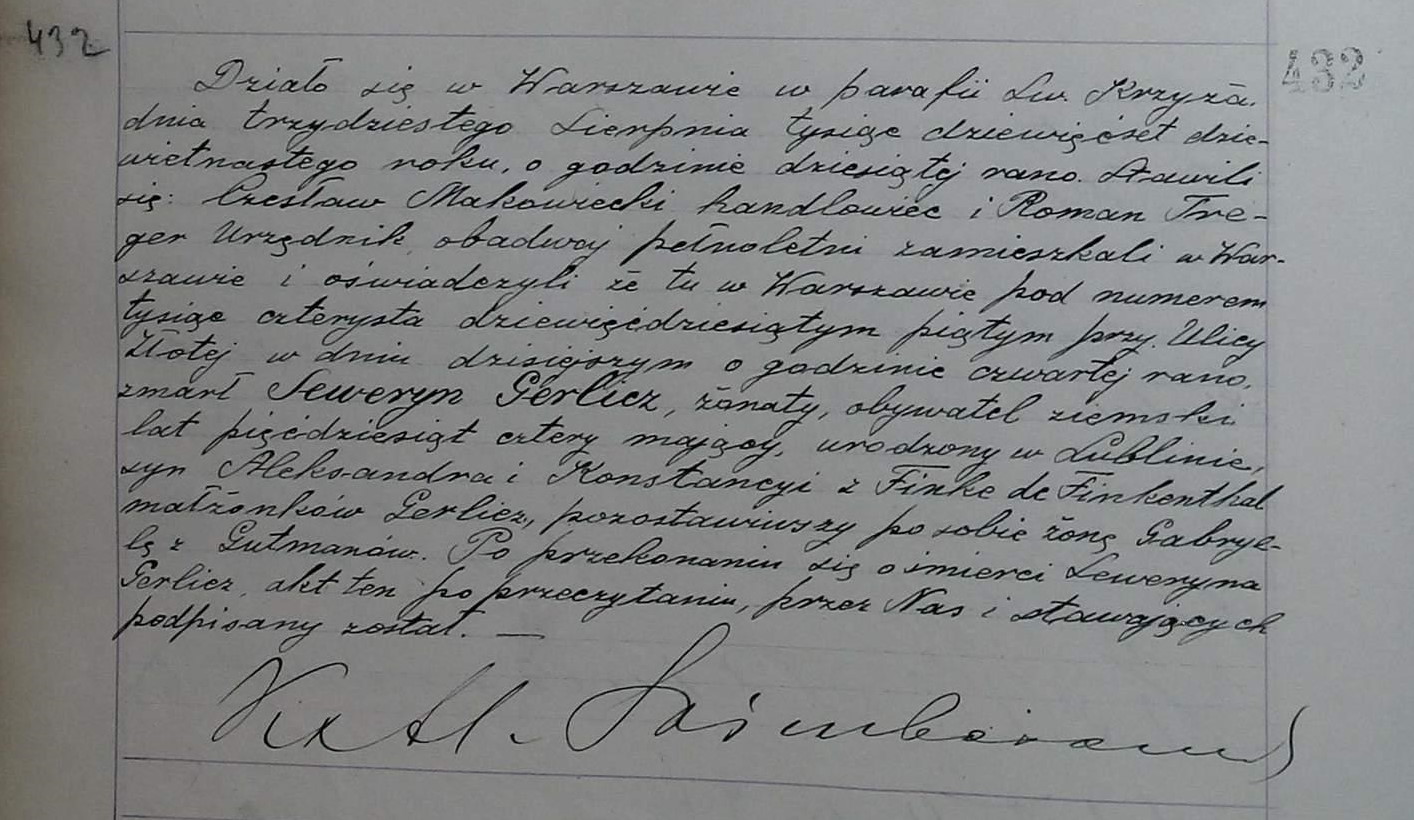 432
432
Działo się w Warszawie w parafii Św. Krzyża.
dnia trzydziestego Sierpnia tysiąc dziewięćset dzie-
więtnastego roku, o godzinie dziesiątej rano. Stawili
się: Czesław Makowiecki handlowiec i Roman Tre-
ger Urzędnik, obadwaj pełnoletni zamieszkali w War-
szawie i oświadczyli że tu w Warszawie pod numerem
tysiąc czterysta dziewięćdziesiątym piątym przy Ulicy
Złotej w dniu dzisiejszym o godzinie czwartej rano,
zmarł Seweryn Gerlicz, żonaty, obywatel ziemski
lat pięćdziesiąt cztery mający, urodzony w Lublinie,
syn Aleksandra i Konstancyi z Finke de Finkenthal
małżonków Gerlicz, pozostawiwszy po sobie żonę Gabrye-
lę z Gutmanów. Po przekonaniu się o śmierci Seweryna
Gerlicz, akt ten po przeczytaniu, przez Nas i stawających
podpisany został. —